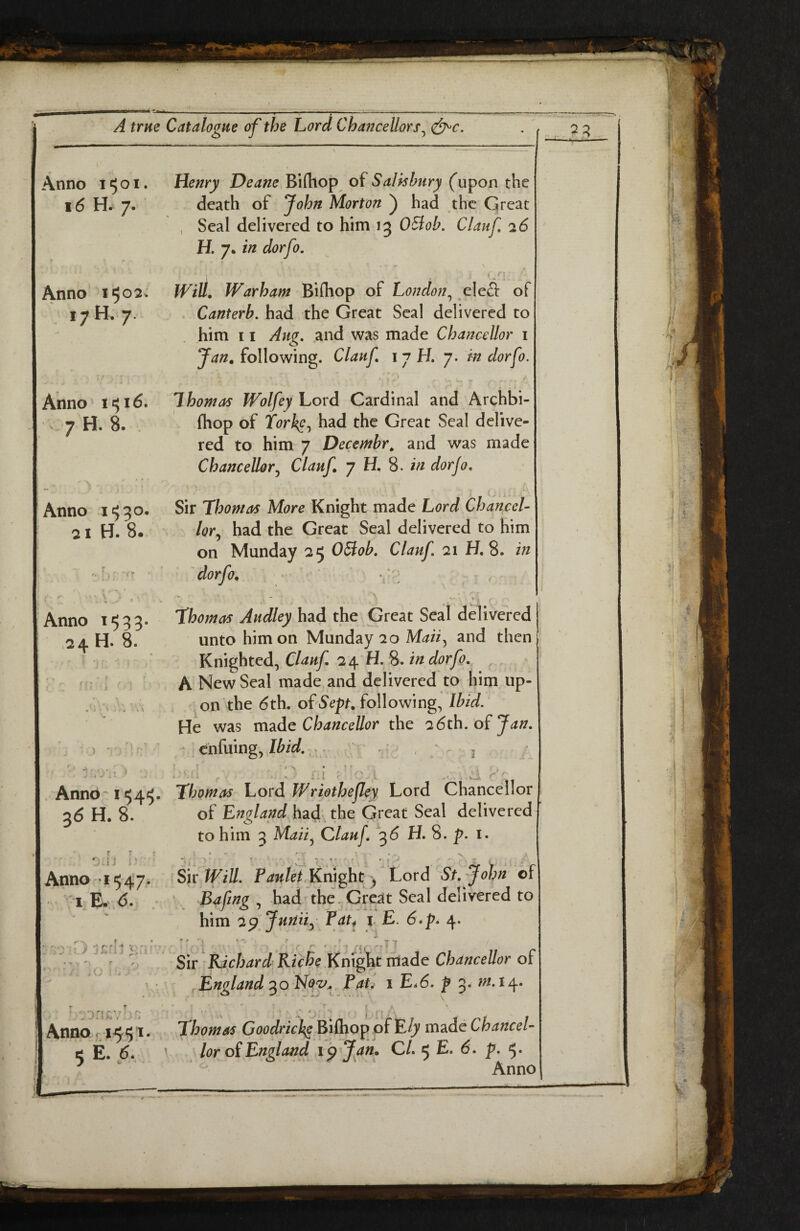 A true Catalogue of the Lord Chancellors, &c.
23
Anno 1501. Henry Deane Biſhop of Salisbury (upon the
16 H. 7. death of John Morton ) had the Great
Seal delivered to him 13 Octob. Clauſ. 26
H. 7. in dorſo.
Anno 1502. Will. Warham Biſhop of London, elect of
17 H. 7. Canterb. had the Great Seal delivered to
him 11 Aug. and was made Chancellor 1
Jan. following. Clauſ. 17 H. 7. in dorſo.
Anno 1516. Thomas Wolſey Lord Cardinal and Archbi-
7 H. 8. ſhop of Yorke, had the Great Seal delive-
red to him 7 Decembr. and was made
Chancellor, Clauſ. 7 H. 8. in dorſo.
Anno 1530. Sir Thomas More Knight made Lord Chancel-
21 H. 8. lor, had the Great Seal delivered to him
on Munday 25 Octob. Clauſ. 21 H. 8. in
dorſo.
Anno 1533. Thomas Audley had the Great Seal delivered
24 H. 8. unto him on Munday 20 Maii, and then
Knighted, Clauſ. 24 H. 8. in dorſo.
A New Seal made and delivered to him up-
on the 6th. of Sept. following, Ibid.
He was made Chancellor the 26th. of Jan.
enſuing, Ibid.
Anno 1545. Thomas Lord Wriotheſley Lord Chancellor
36 H. 8. of England had the Great Seal delivered
to him 3 Maii, Clauſ. 36 H. 8. p. 1.
Anno 1547. Sir Will. Paulet Knight, Lord St. John of
1 E. 6. Baſing, had the Great Seal delivered to
him 29 Junii, Pat. 1 E. 6. p. 4.
Sir Richard Riche Knight made Chancellor of
England 30 Nov. Pat. 1 E. 6. p 3. m. 14.
Anno 1551. Thomas Goodricke Biſhop of Ely made Chancel-
5 E. 6. lor of England 19 Jan. Cl. 5 E. 6. p. 5.
Anno